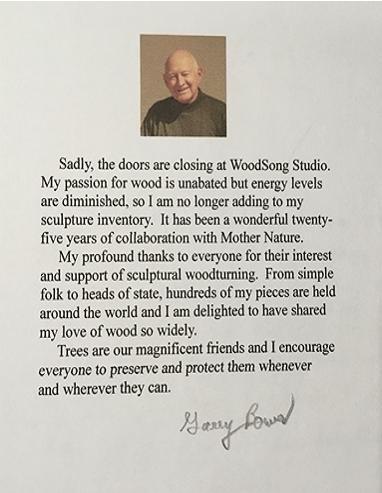 Sadly, the doors are closing at WoodSong Studio.
My passion for wood is unabated but energy levels
are diminished, so I am no longer adding to my
sculpture inventory. It has been a wonderful twenty-
five years of collaboration with Mother Nature.
My profound thanks to everyone for their interest
and support of sculptural woodturning. From simple
folk to heads of state, hundreds of my pieces are held
around the world and I am delighted to have shared
my love of wood so widely.
Trees are our magnificent friends and I encourage
everyone to preserve and protect them whenever
and wherever they can.